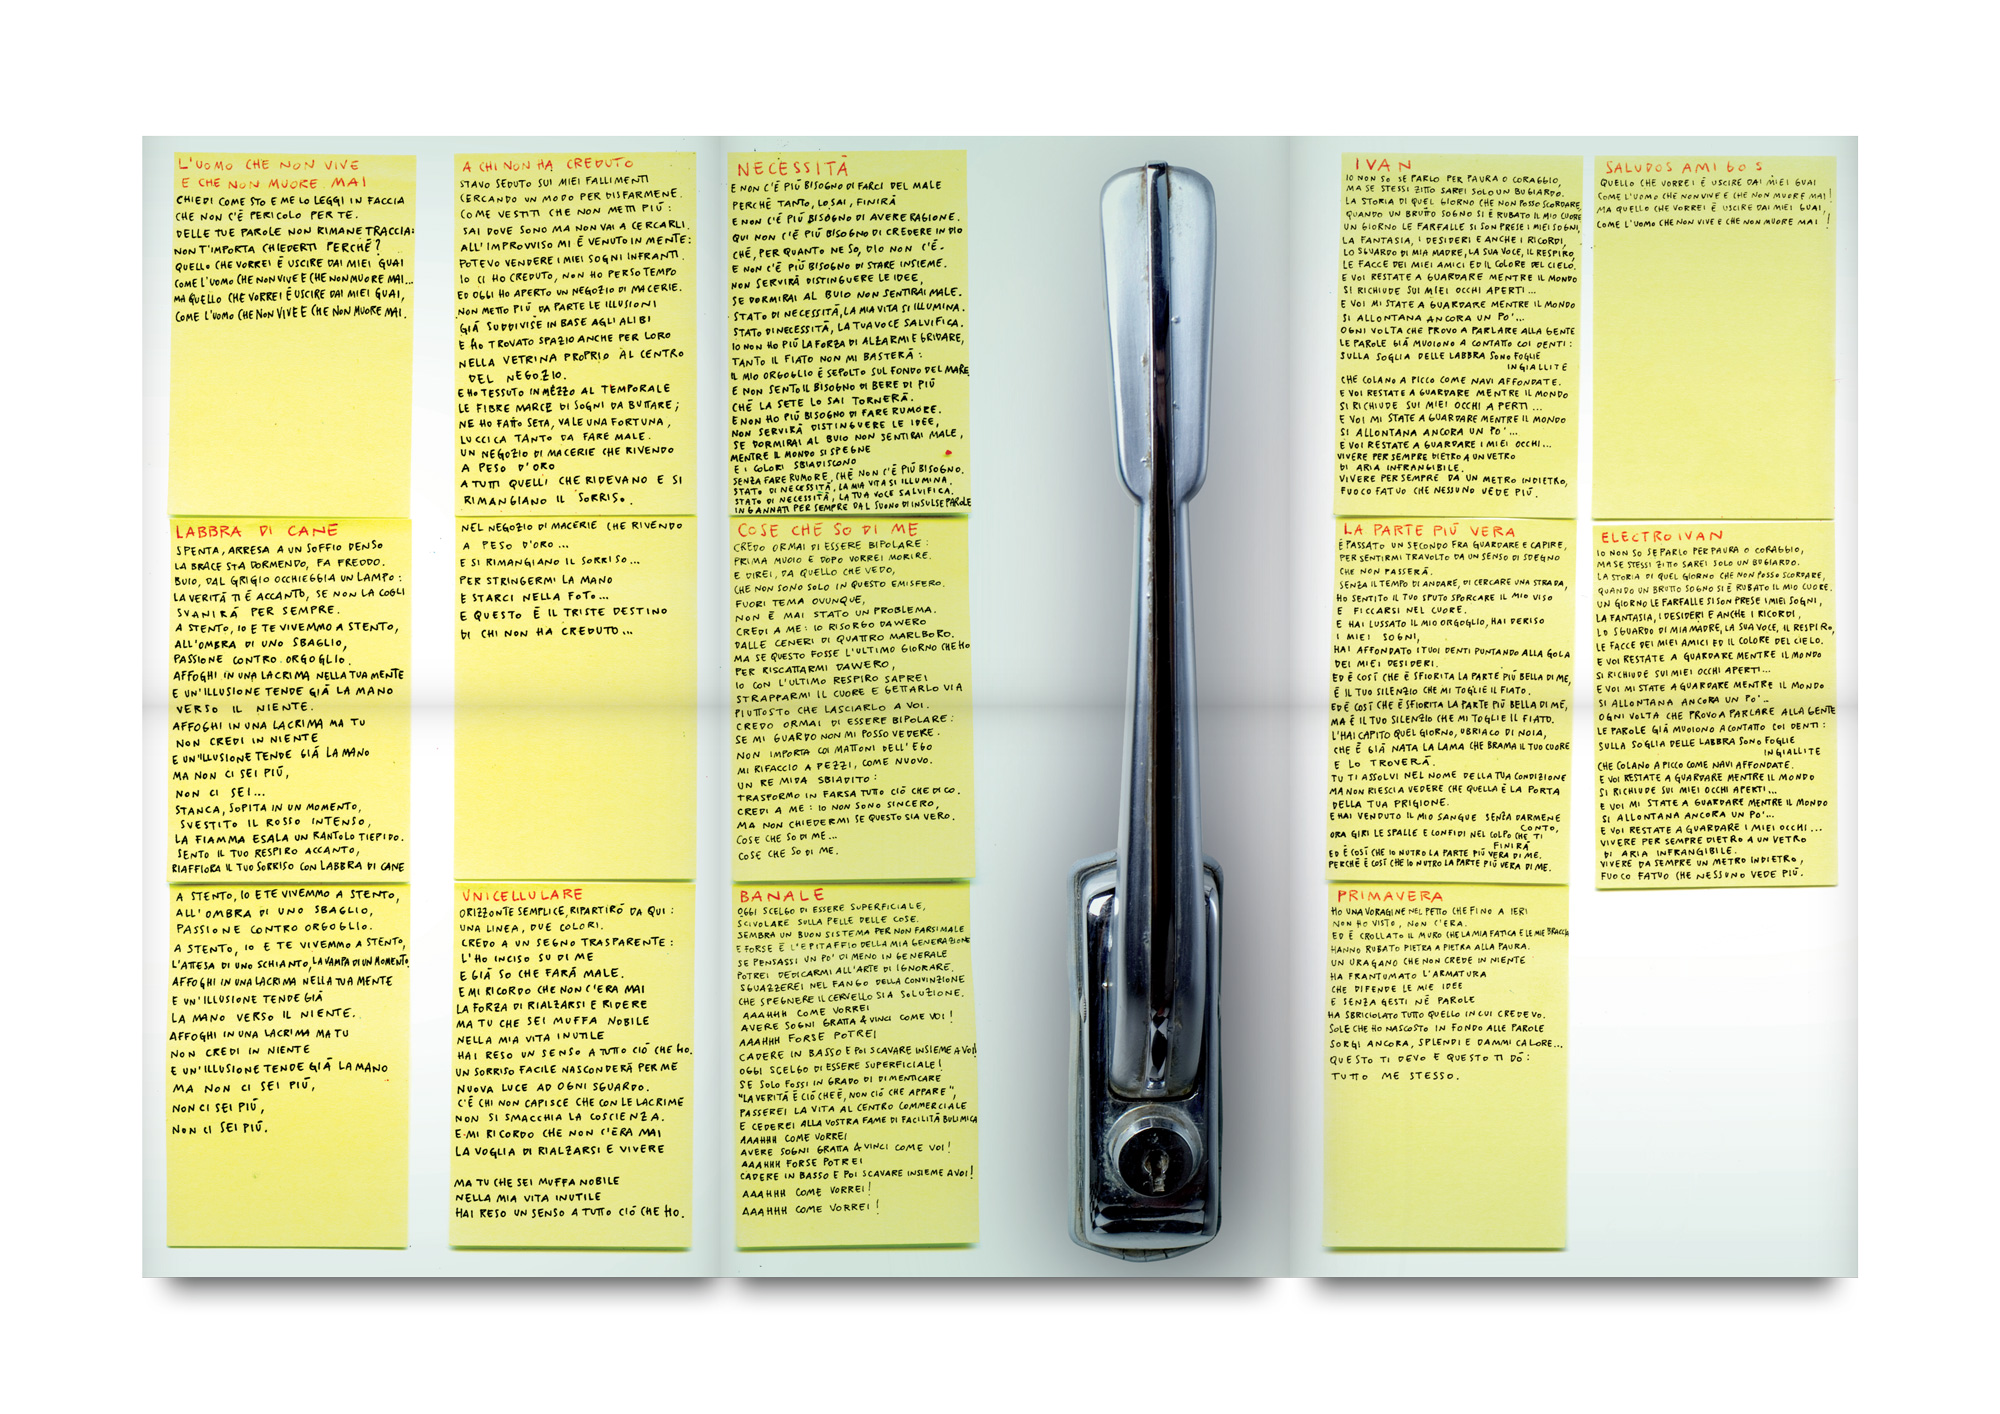 L'UOMO CHE NON VIVE
E CHE NON MUORE MAI
CHIEDI COME STO E ME LO LEGGI IN FACCIA
CHE NON C'È PERICOLO PER TE.
DELLE TUE PAROLE NON RIMANE TRACCIA:
NON T'IMPORTA CHIEDERTI PERCHÉ?
QUELLO CHE VORREI È USCIRE DAI MIEI GUAI
COME L'UOMO CHE NON VIVE E CHE NON MUORE MAI...
MA QUELLO CHE VORREI È USCIRE DAI MIEI GUAI,
COME L'UOMO CHE NON VIVE E CHE NON MUORE MAI.
LABBRA DI CANE
SPENTA, ARRESA A UN SOFFIO DENSO
LA BRACE STA DORMENDO, FA FREDDO.
BUIO, DAL GRIGIO OCCHIEGGIA UN LAMPO:
LA VERITÀ TI È ACCANTO, SE NON LA COGLI
SVANIRÀ PER SEMPRE.
A STENTO, IO E TE VIVEMMO A STENTO,
ALL'OMBRA DI UNO SBAGLIO,
PASSIONE CONTRO ORGOGLIO.
AFFOGHI IN UNA LACRIMA NELLA TUA MENTE
E UN'ILLUSIONE TENDE GIÀ LA MANO
VERSO IL NIENTE.
AFFOGHI IN UNA LACRIMA MA TU
NON CREDI IN NIENTE
E UN'ILLUSIONE TENDE GIÀ LA MANO
MA NON CI SEI PIÙ,
NON CI SEI...
STANCA, SOPITA IN UN MOMENTO,
SVESTITO IL ROSSO INTENSO,
LA FIAMMA ESALA UN RANTOLO TIEPIDO.
SENTO IL TUO RESPIRO ACCANTO,
RIAFFIORA IL TUO SORRISO CON LABBRA DI CANE
A STENTO, IO E TE VIVEMMO A STENTO,
ALL'OMBRA DI UNO SBAGLIO,
PASSIONE CONTRO ORGOGLIO.
A STENTO, IO E TE VIVEMMO A STENTO,
L'ATTESA DI UNO SCHIANTO, LA VAMPA DI UN MOMENTO.
AFFOGHI IN UNA LACRIMA NELLA TUA MENTE
E UN'ILLUSIONE TENDE GIÀ
LA MANO VERSO IL NIENTE.
AFFOGHI IN UNA LACRIMA MA TU
NON CREDI IN NIENTE
E UN'ILLUSIONE TENDE GIÀ LA MANO
MA NON CI SEI PIÙ,
NON CI SEI PIÙ,
NON CI SEI PIÙ.
A CHI NON HA CREDUTO
STAVO SEDUTO SUI MIEI FALLIMENTI
CERCANDO UN MODO PER DISFARMENE.
COME VESTITI CHE NON METTI PIÙ:
SAI DOVE SONO MA NON VAI A CERCARLI.
ALL'IMPROVVISO MI È VENUTO IN MENTE:
POTEVO VENDERE I MIEI SOGNI INFRANTI.
IO CI HO CREDUTO, NON HO PERSO TEMPO
ED OGGI HO APERTO UN NEGOZIO DI MACERIE.
NON METTO PIÙ DA PARTE LE ILLUSIONI
GIÀ SUDDIVISE IN BASE AGLI ALIBI
E HO TROVATO SPAZIO ANCHE PER LORO
NELLA VETRINA PROPRIO AL CENTRO
DEL NEGOZIO.
E HO TESSUTO IN MEZZO AL TEMPORALE
LE FIBRE MARCE DI SOGNI DA BUTTARE;
NE HO FATTO SETA, VALE UNA FORTUNA,
LUCCICA TANTO DA FARE MALE.
UN NEGOZIO DI MACERIE CHE RIVENDO
A PESO D'ORO
A TUTTI QUELLI CHE RIDEVANO E SI
RIMANGIANO IL SORRISO.
NEL NEGOZIO DI MACERIE CHE RIVENDO
A PESO D'ORO...
E SI RIMANGIANO IL SORRISO...
PER STRINGERMI LA MANO
E STARCI NELLA FOTO...
E QUESTO È IL TRISTE DESTINO
DI CHI NON HA CREDUTO...
UNICELLULARE
ORIZZONTE SEMPLICE, RIPARTIRÒ DA QUI:
UNA LINEA, DUE COLORI.
CREDO A UN SEGNO TRASPARENTE:
L'HO INCISO SU DI ME
E GIÀ SO CHE FARÀ MALE.
E MI RICORDO CHE NON C'ERA MAI
LA FORZA DI RIALZARSI E RIDERE
MA TU CHE SEI MUFFA NOBILE
NELLA MIA VITA INUTILE
HAI RESO UN SENSO A TUTTO CIÒ CHE HO.
UN SORRISO FACILE NASCONDERÀ PER ME
NUOVA LUCE AD OGNI SGUARDO.
C'È CHI NON CAPISCE CHE CON LE LACRIME
NON SI SMACCHIA LA COSCIENZA.
E MI RICORDO CHE NON C'ERA MAI
LA VOGLIA DI RIALZARSI E VIVERE
MA TU CHE SEI MUFFA NOBILE
NELLA MIA VITA INUTILE
HAI RESO UN SENSO A TUTTO CIÒ CHE HO.
NECESSITÀ
E NON C'È PIÙ BISOGNO DI FARCI DEL MALE
PERCHÉ TANTO, LO SAI, FINIRÀ
E NON C'È PIÙ BISOGNO DI AVERE RAGIONE.
QUI NON C'È PIÙ BISOGNO DI CREDERE IN DIO
CHÉ, PER QUANTO NE SO, DIO NON C'È.
E NON C'È PIÙ BISOGNO DI STARE INSIEME.
NON SERVIRÀ DISTINGUERE LE IDEE,
SE DORMIRAI AL BUIO NON SENTIRAI MALE.
STATO DI NECESSITÀ, LA MIA VITA SI ILLUMINA.
STATO DI NECESSITÀ, LA TUA VOCE SALVIFICA.
IO NON HO PIÙ LA FORZA DI ALZARMI E GRIDARE,
TANTO IL FIATO NON MI BASTERÀ:
IL MIO ORGOGLIO È SEPOLTO SUL FONDO DEL MARE
E NON SENTO IL BISOGNO DI BERE DI PIÙ
CHÉ LA SETE LO SAI TORNERÀ.
E NON HO PIÙ BISOGNO DI FARE RUMORE.
NON SERVIRÀ DISTINGUERE LE IDEE,
SE DORMIRAI AL BUIO NON SENTIRAI MALE,
MENTRE IL MONDO SI SPEGNE
E I COLORI SBIADISCONO
SENZA FARE RUMORE, CHÉ NON C'È PIÙ BISOGNO.
STATO DI NECESSITÀ, LA MIA VITA SI ILLUMINA.
STATO DI NECESSITÀ, LA TUA VOCE SALVIFICA.
INGANNATI PER SEMPRE DAL SUONO DI INSULSE PAROLE
COSE CHE SO DI ME
CREDO ORMAI DI ESSERE BIPOLARE:
PRIMA MUOIO E DOPO VORREI MORIRE.
E DIREI, DA QUELLO CHE VEDO,
CHE NON SONO SOLO IN QUESTO EMISFERO.
FUORI TEMA OVUNQUE,
NON È MAI STATO UN PROBLEMA.
CREDI A ME: IO RISORGO DAVVERO
DALLE CENERI DI QUATTRO MARLBORO.
MA SE QUESTO FOSSE L'ULTIMO GIORNO CHE HO
PER RISCATTARMI DAVVERO,
IO CON L'ULTIMO RESPIRO SAPREI
STRAPPARMI IL CUORE E GETTARLO VIA
PIUTTOSTO CHE LASCIARLO A VOI.
CREDO ORMAI DI ESSERE BIPOLARE:
SE MI GUARDO NON MI POSSO VEDERE.
NON IMPORTA COI MATTONI DELL'EGO
MI RIFACCIO A PEZZI, COME NUOVO.
UN RE MIDA SBIADITO:
TRASFORMO IN FARSA TUTTO CIÒ CHE DICO.
CREDI A ME: IO NON SONO SINCERO,
MA NON CHIEDERMI SE QUESTO SIA VERO.
COSE CHE SO DI ME...
COSE CHE SO DI ME.
BANALE
OGGI SCELGO DI ESSERE SUPERFICIALE,
SCIVOLARE SULLA PELLE DELLE COSE.
SEMBRA UN BUON SISTEMA PER NON FARSI MALE
E FORSE È L'EPITAFFIO DELLA MIA GENERAZIONE
SE PENSASSI UN PO' DI MENO IN GENERALE
POTREI DEDICARMI ALL'ARTE DI IGNORARE.
SGUAZZEREI NEL FANGO DELLA CONVINZIONE
CHE SPEGNERE IL CERVELLO SIA SOLUZIONE.
AAAHHH COME VORREI
AVERE SOGNI GRATTA & VINCI COME VOI!
AAAHHH FORSE POTREI
CADERE IN BASSO E POI SCAVARE INSIEME A VOI!
OGGI SCELGO DI ESSERE SUPERFICIALE!
SE SOLO FOSSI IN GRADO DI DIMENTICARE
"LA VERITÀ È CIÒ CHE È, NON CIÒ CHE APPARE",
PASSEREI LA VITA AL CENTRO COMMERCIALE
E CEDEREI ALLA VOSTRA FAME DI FACILITÀ BULIMICA
AAAHHH COME VORREI
AVERE SOGNI GRATTA & VINCI COME VOI!
AAAHHH FORSE POTREI
CADERE IN BASSO E POI SCAVARE INSIEME A VOI!
AAAHHH COME VORREI!
AAAHHH COME VORREI!
IVAN
IO NON SO SE PARLO PER PAURA O CORAGGIO,
MA SE STESSI ZITTO SAREI SOLO UN BUGIARDO.
LA STORIA DI QUEL GIORNO CHE NON POSSO SCORDARE,
QUANDO UN BRUTTO SOGNO SI È RUBATO IL MIO CUORE
UN GIORNO LE FARFALLE SI SON PRESE I MIEI SOGNI,
LA FANTASIA, I DESIDERI E ANCHE I RICORDI,
LO SGUARDO DI MIA MADRE, LA SUA VOCE, IL RESPIRO,
LE FACCE DEI MIEI AMICI ED IL COLORE DEL CIELO.
E VOI RESTATE A GUARDARE MENTRE IL MONDO
SI RICHIUDE SUI MIEI OCCHI APERTI...
E VOI MI STATE A GUARDARE MENTRE IL MONDO
SI ALLONTANA ANCORA UN PO'...
OGNI VOLTA CHE PROVO A PARLARE ALLA GENTE
LE PAROLE GIÀ MUOIONO A CONTATTO COI DENTI:
SULLA SOGLIA DELLE LABBRA SONO FOGLIE
INGIALLITE
CHE COLANO A PICCO COME NAVI AFFONDATE.
E VOI RESTATE A GUARDARE MENTRE IL MONDO
SI RICHIUDE SUI MIEI OCCHI APERTI...
E VOI MI STATE A GUARDARE MENTRE IL MONDO
SI ALLONTANA ANCORA UN PO'...
E VOI RESTATE A GUARDARE I MIEI OCCHI...
VIVERE PER SEMPRE DIETRO A UN VETRO
DI ARIA INFRANGIBILE.
VIVERE PER SEMPRE DA UN METRO INDIETRO,
FUOCO FATUO CHE NESSUNO VEDE PIÙ.
LA PARTE PIÙ VERA
È PASSATO UN SECONDO FRA GUARDARE E CAPIRE,
PER SENTIRMI TRAVOLTO DA UN SENSO DI SDEGNO
CHE NON PASSERÀ.
SENZA IL TEMPO DI ANDARE, DI CERCARE UNA STRADA,
HO SENTITO IL TUO SPUTO SPORCARE IL MIO VISO
E FICCARSI NEL CUORE.
E HAI LUSSATO IL MIO ORGOGLIO, HAI DERISO
I MIEI SOGNI,
HAI AFFONDATO I TUOI DENTI PUNTANDO ALLA GOLA
DEI MIEI DESIDERI.
ED È COSÌ CHE È SFIORITA LA PARTE PIÙ BELLA DI ME,
È IL TUO SILENZIO CHE MI TOGLIE IL FIATO.
ED È COSÌ CHE È SFIORITA LA PARTE PIÙ BELLA DI ME,
MA È IL TUO SILENZIO CHE MI TOGLIE IL FIATO.
L'HAI CAPITO QUEL GIORNO, UBRIACO DI NOIA,
CHE È GIÀ NATA LA LAMA CHE BRAMA IL TUO CUORE
E LO TROVERÀ.
TU TI ASSOLVI NEL NOME DELLA TUA CONDIZIONE
MA NON RIESCI A VEDERE CHE QUELLA È LA PORTA
DELLA TUA PRIGIONE.
E HAI VENDUTO IL MIO SANGUE SENZA DARMENE
CONTO,
ORA GIRI LE SPALLE E CONFIDI NEL COLPO CHE TI
FINIRÀ
ED È COSÌ CHE IO NUTRO LA PARTE PIÙ VERA DI ME.
PERCHÉ È COSÌ CHE IO NUTRO LA PARTE PIÙ VERA DI ME.
PRIMAVERA
HO UNA VORAGINE NEL PETTO CHE FINO A IERI
NON HO VISTO, NON C'ERA.
ED È CROLLATO IL MURO CHE LA MIA FATICA E LE MIE BRACCIA
HANNO RUBATO PIETRA A PIETRA ALLA PAURA.
UN URAGANO CHE NON CREDE IN NIENTE
HA FRANTUMATO L'ARMATURA
CHE DIFENDE LE MIE IDEE
E SENZA GESTI NÉ PAROLE
HA SBRICIOLATO TUTTO QUELLO IN CUI CREDEVO.
SOLE CHE HO NASCOSTO IN FONDO ALLE PAROLE
SORGI ANCORA, SPLENDI E DAMMI CALORE...
QUESTO TI DEVO E QUESTO TI DÒ:
TUTTO ME STESSO.
SALUDOS AMIGOS
QUELLO CHE VORREI È USCIRE DAI MIEI GUAI
COME L'UOMO CHE NON VIVE E CHE NON MUORE MAI!
MA QUELLO CHE VORREI È USCIRE DAI MIEI GUAI,
COME L'UOMO CHE NON VIVE E CHE NON MUORE MAI!
ELECTROIVAN
IO NON SO SE PARLO PER PAURA O CORAGGIO,
MA SE STESSI ZITTO SAREI SOLO UN BUGIARDO.
LA STORIA DI QUEL GIORNO CHE NON POSSO SCORDARE,
QUANDO UN BRUTTO SOGNO SI È RUBATO IL MIO CUORE.
UN GIORNO LE FARFALLE SI SON PRESE I MIEI SOGNI,
LA FANTASIA, I DESIDERI E ANCHE I RICORDI,
LO SGUARDO DI MIA MADRE, LA SUA VOCE, IL RESPIRO,
LE FACCE DEI MIEI AMICI ED IL COLORE DEL CIELO.
E VOI RESTATE A GUARDARE MENTRE IL MONDO
SI RICHIUDE SUI MIEI OCCHI APERTI...
E VOI MI STATE A GUARDARE MENTRE IL MONDO
SI ALLONTANA ANCORA UN PO'...
OGNI VOLTA CHE PROVO A PARLARE ALLA GENTE
LE PAROLE GIÀ MUOIONO A CONTATTO COI DENTI:
SULLA SOGLIA DELLE LABBRA SONO FOGLIE
INGIALLITE
CHE COLANO A PICCO COME NAVI AFFONDATE.
E VOI RESTATE A GUARDARE MENTRE IL MONDO
SI RICHIUDE SUI MIEI OCCHI APERTI...
E VOI MI STATE A GUARDARE MENTRE IL MONDO
SI ALLONTANA ANCORA UN PO'...
E VOI RESTATE A GUARDARE I MIEI OCCHI...
VIVERE PER SEMPRE DIETRO A UN VETRO
DI ARIA INFRANGIBILE.
VIVERE DA SEMPRE UN METRO INDIETRO,
FUOCO FATUO CHE NESSUNO VEDE PIÙ.